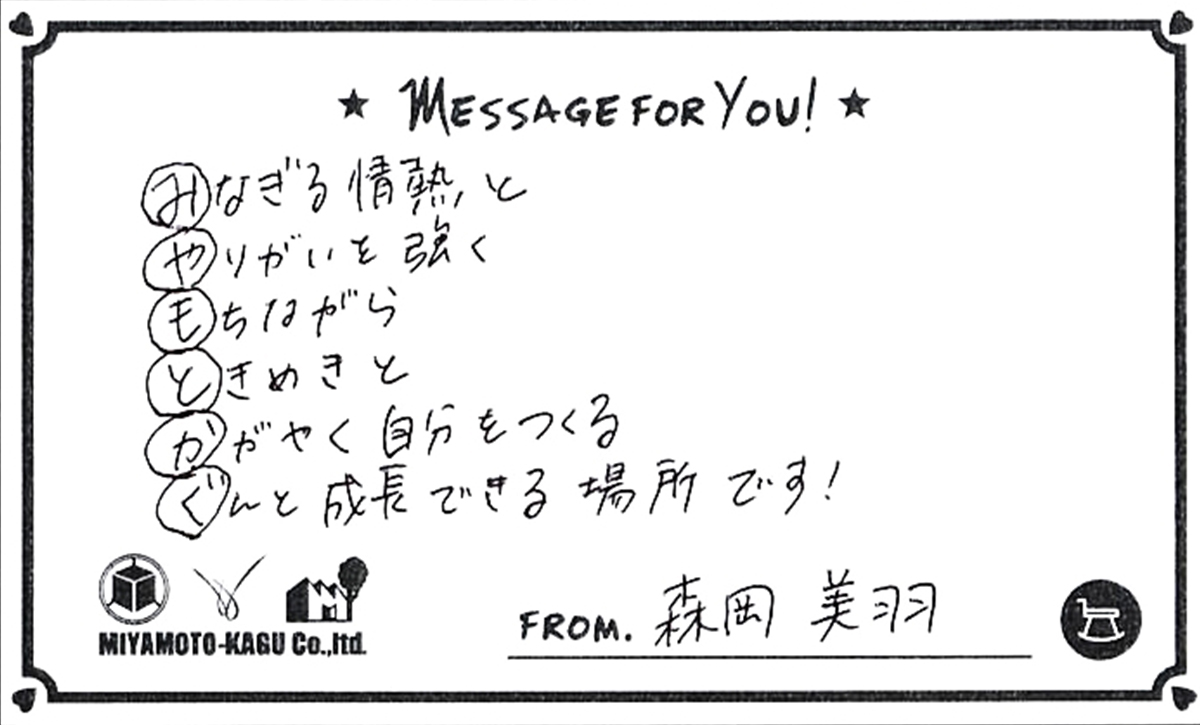 ★ MESSAGE FOR YOU! ★
みなぎる情熱と
やりがいを強く
もちながら
ときめきと
かがやく自分をつくる
ぐんと成長できる場所です!
MIYAMOTO-KAGU Co.,ltd.
FROM. 森岡 美羽